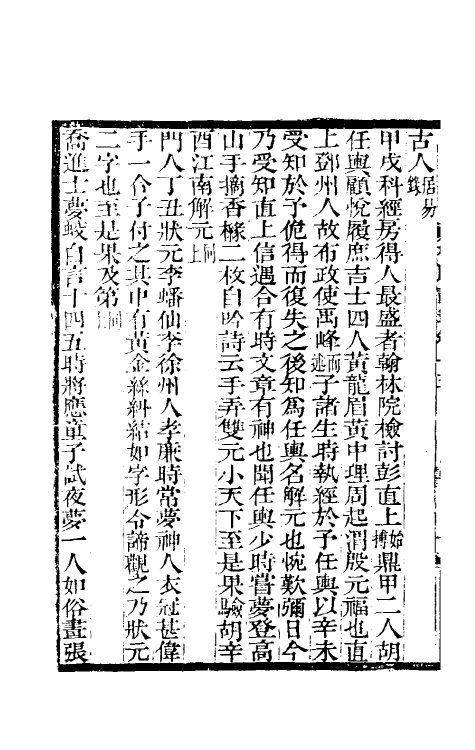 古人居易錄
甲戌科經房得人最盛者翰林院檢討彭直上始摶鼎甲二人胡
任輿顧悅履庶吉士四人黃龍眉黃中理周起渭殷元福也直
上鄧州人故布政使禹峰而述子諸生時執經於予任輿以辛未
受知於予俛得而復失之後知為任輿名解元也惋歎彌日今
乃受知直上信遇合有時文章有神也聞任輿少時嘗夢登高
山手摘香櫞二枚自吟詩云手弄雙元小天下至是果驗胡辛
酉江南解元同上
門人丁丑狀元李蟠仙李徐州人孝廉時常夢神人衣冠甚偉
手一合子付之其中有黃金絲糾結如字形令諦觀之乃狀元
二字也至是果及第同上
喬進士夢蛟自言十四五時將應童子試夜夢一人如俗畫張